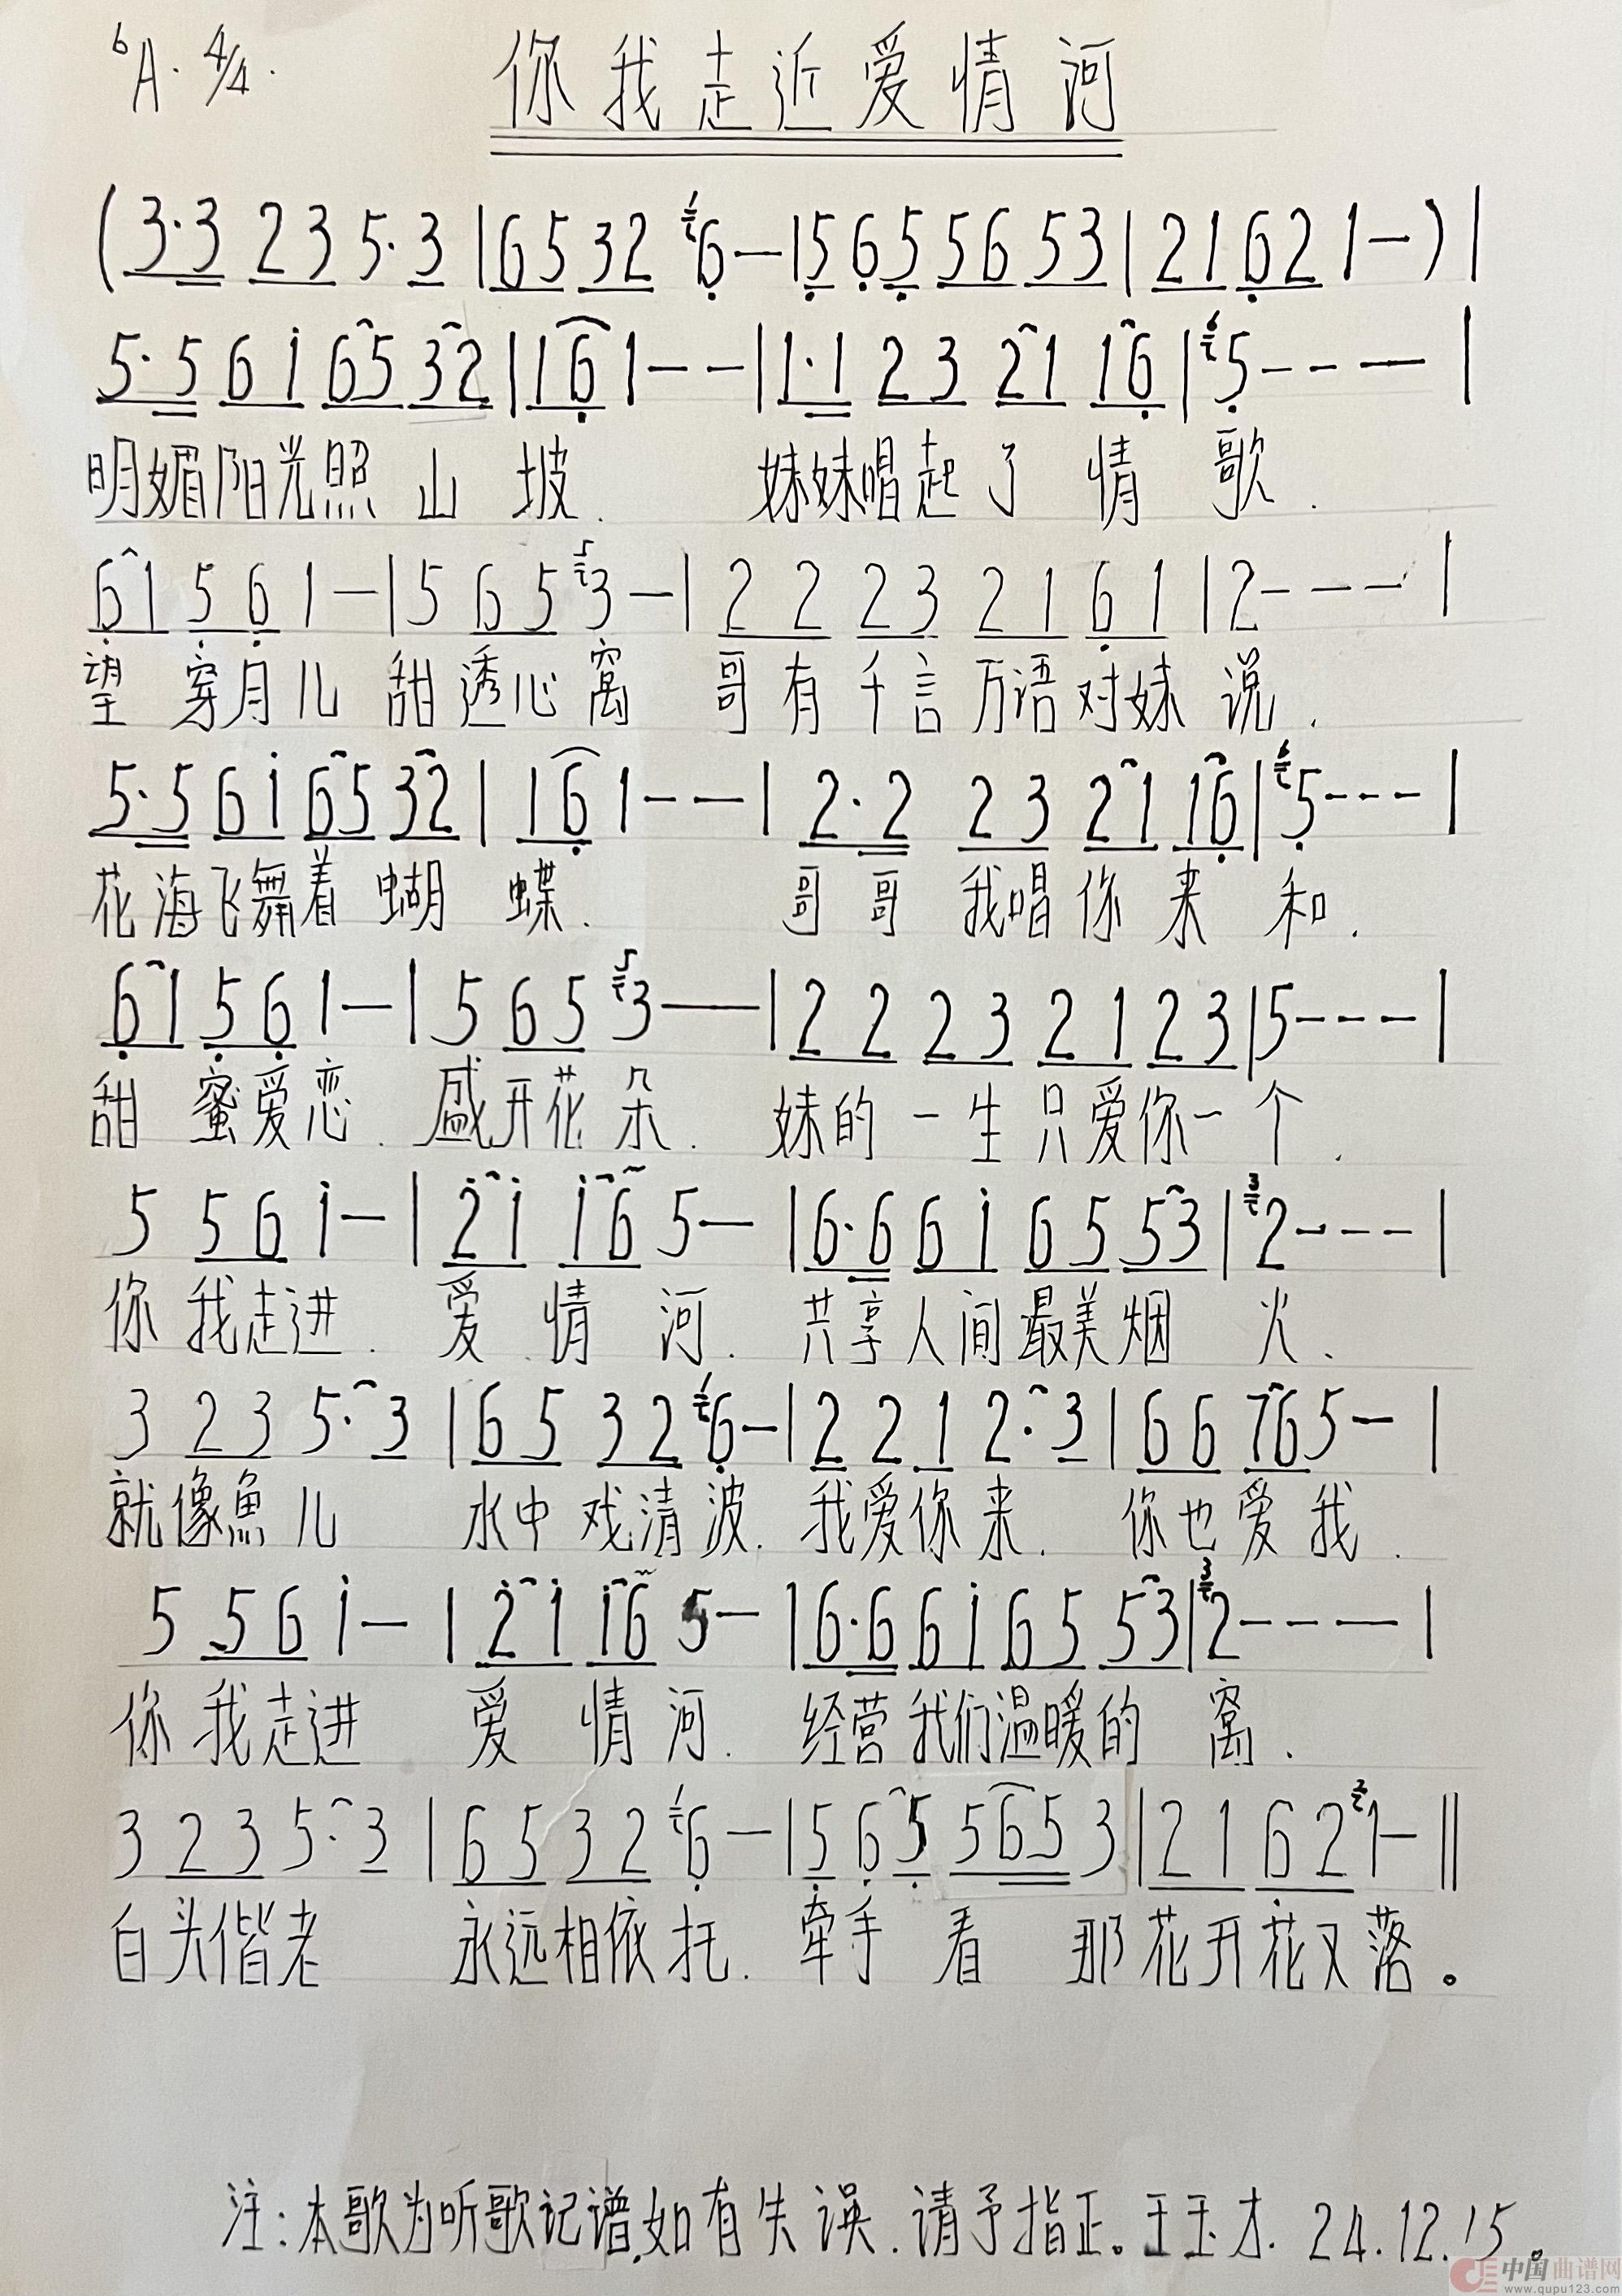 ♭A. 4/4. 你我走近爱情河
(3·3 23 5·3 | 65 32 6— | 5 6 5 56 53 | 21 62 1—) |
5·5 6i 65 32 | 16 1—— | 1·1 23 21 16 | 5——— |
明媚阳光照山坡. 妹妹唱起了情歌.
61 56 1— | 5 65 3— | 22 23 21 61 | 2——— |
望穿月儿甜透心窝 哥有千言万语对妹说.
5·5 6i 65 32 | 16 1—— | 2·2 23 21 16 | 5——— |
花海飞舞着蝴蝶. 哥哥我唱你来和.
61 56 1— | 5 65 3— | 22 23 21 23 | 5——— |
甜蜜爱恋. 盛开花朵. 妹的一生只爱你一个.
5 56 i— | 2i i6 5— | 6·6 6i 65 53 | 2——— |
你我走进. 爱情河. 共享人间最美烟火.
3 23 5·3 | 65 32 6— | 2 2 1 2·3 | 66 76 5— |
就像魚儿 水中戏清波. 我爱你来. 你也爱我.
5 56 i— | 2i i6 5— | 6·6 6i 65 53 | 2——— |
你我走进 爱情河. 经营我们温暖的窝.
3 23 5·3 | 65 32 6— | 5 6 5 565 3 | 21 62 1— ‖
白头偕老 永远相依托. 牵手看 那花开花又落。
注:本歌为听歌记谱,如有失误.请予指正。王玉才. 24.12.15。
中国曲谱网
www.qupu123.com